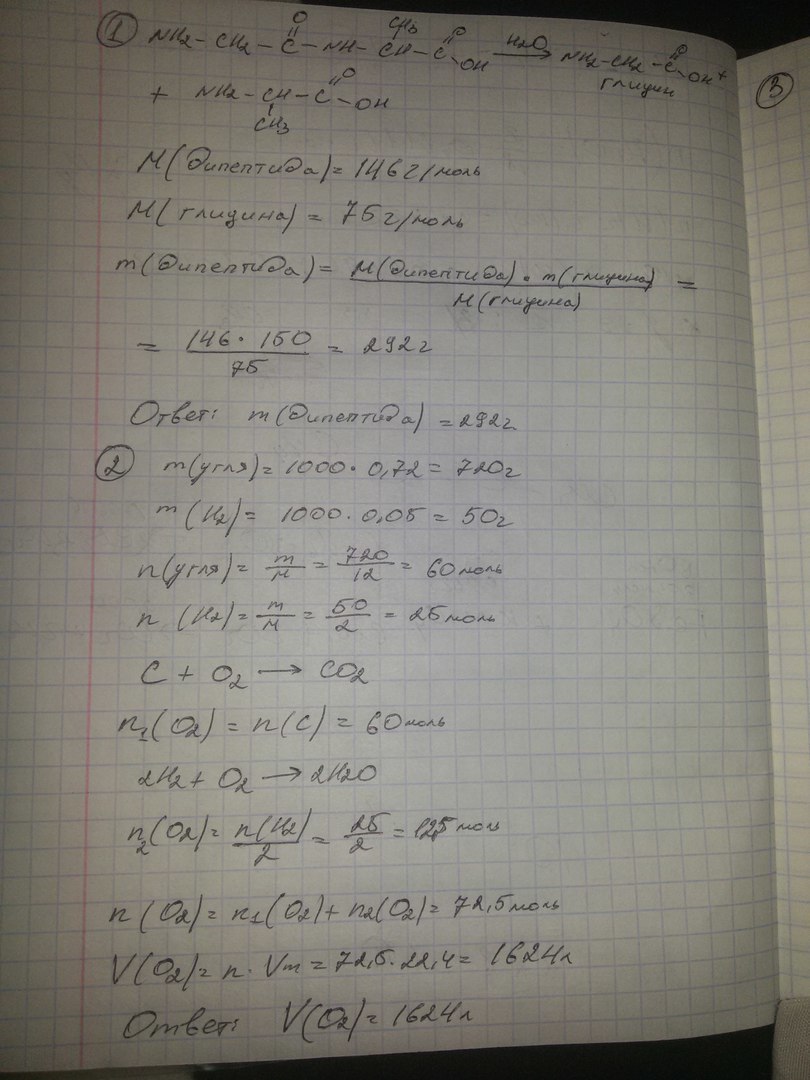 ① NH2 – CH2 – C(=O) – NH – CH(CH3) – C(=O) – OH —H2O→ NH2 – CH2 – C(=O) – OH +
глицин
+ NH2 – CH(CH3) – C(=O) – OH
M(дипептида) = 146 г/моль
M(глицина) = 75 г/моль
m(дипептида) = M(дипептида) · m(глицина) / M(глицина) =
= 146 · 150 / 75 = 292 г
Ответ: m(дипептида) = 292 г
② m(угля) = 1000 · 0,72 = 720 г
m(H2) = 1000 · 0,05 = 50 г
n(угля) = m/M = 720/12 = 60 моль
n(H2) = m/M = 50/2 = 25 моль
C + O2 → CO2
n1(O2) = n(C) = 60 моль
2H2 + O2 → 2H2O
n2(O2) = n(H2)/2 = 25/2 = 12,5 моль
n(O2) = n1(O2) + n2(O2) = 72,5 моль
V(O2) = n · Vm = 72,5 · 22,4 = 1624 л
Ответ: V(O2) = 1624 л
③